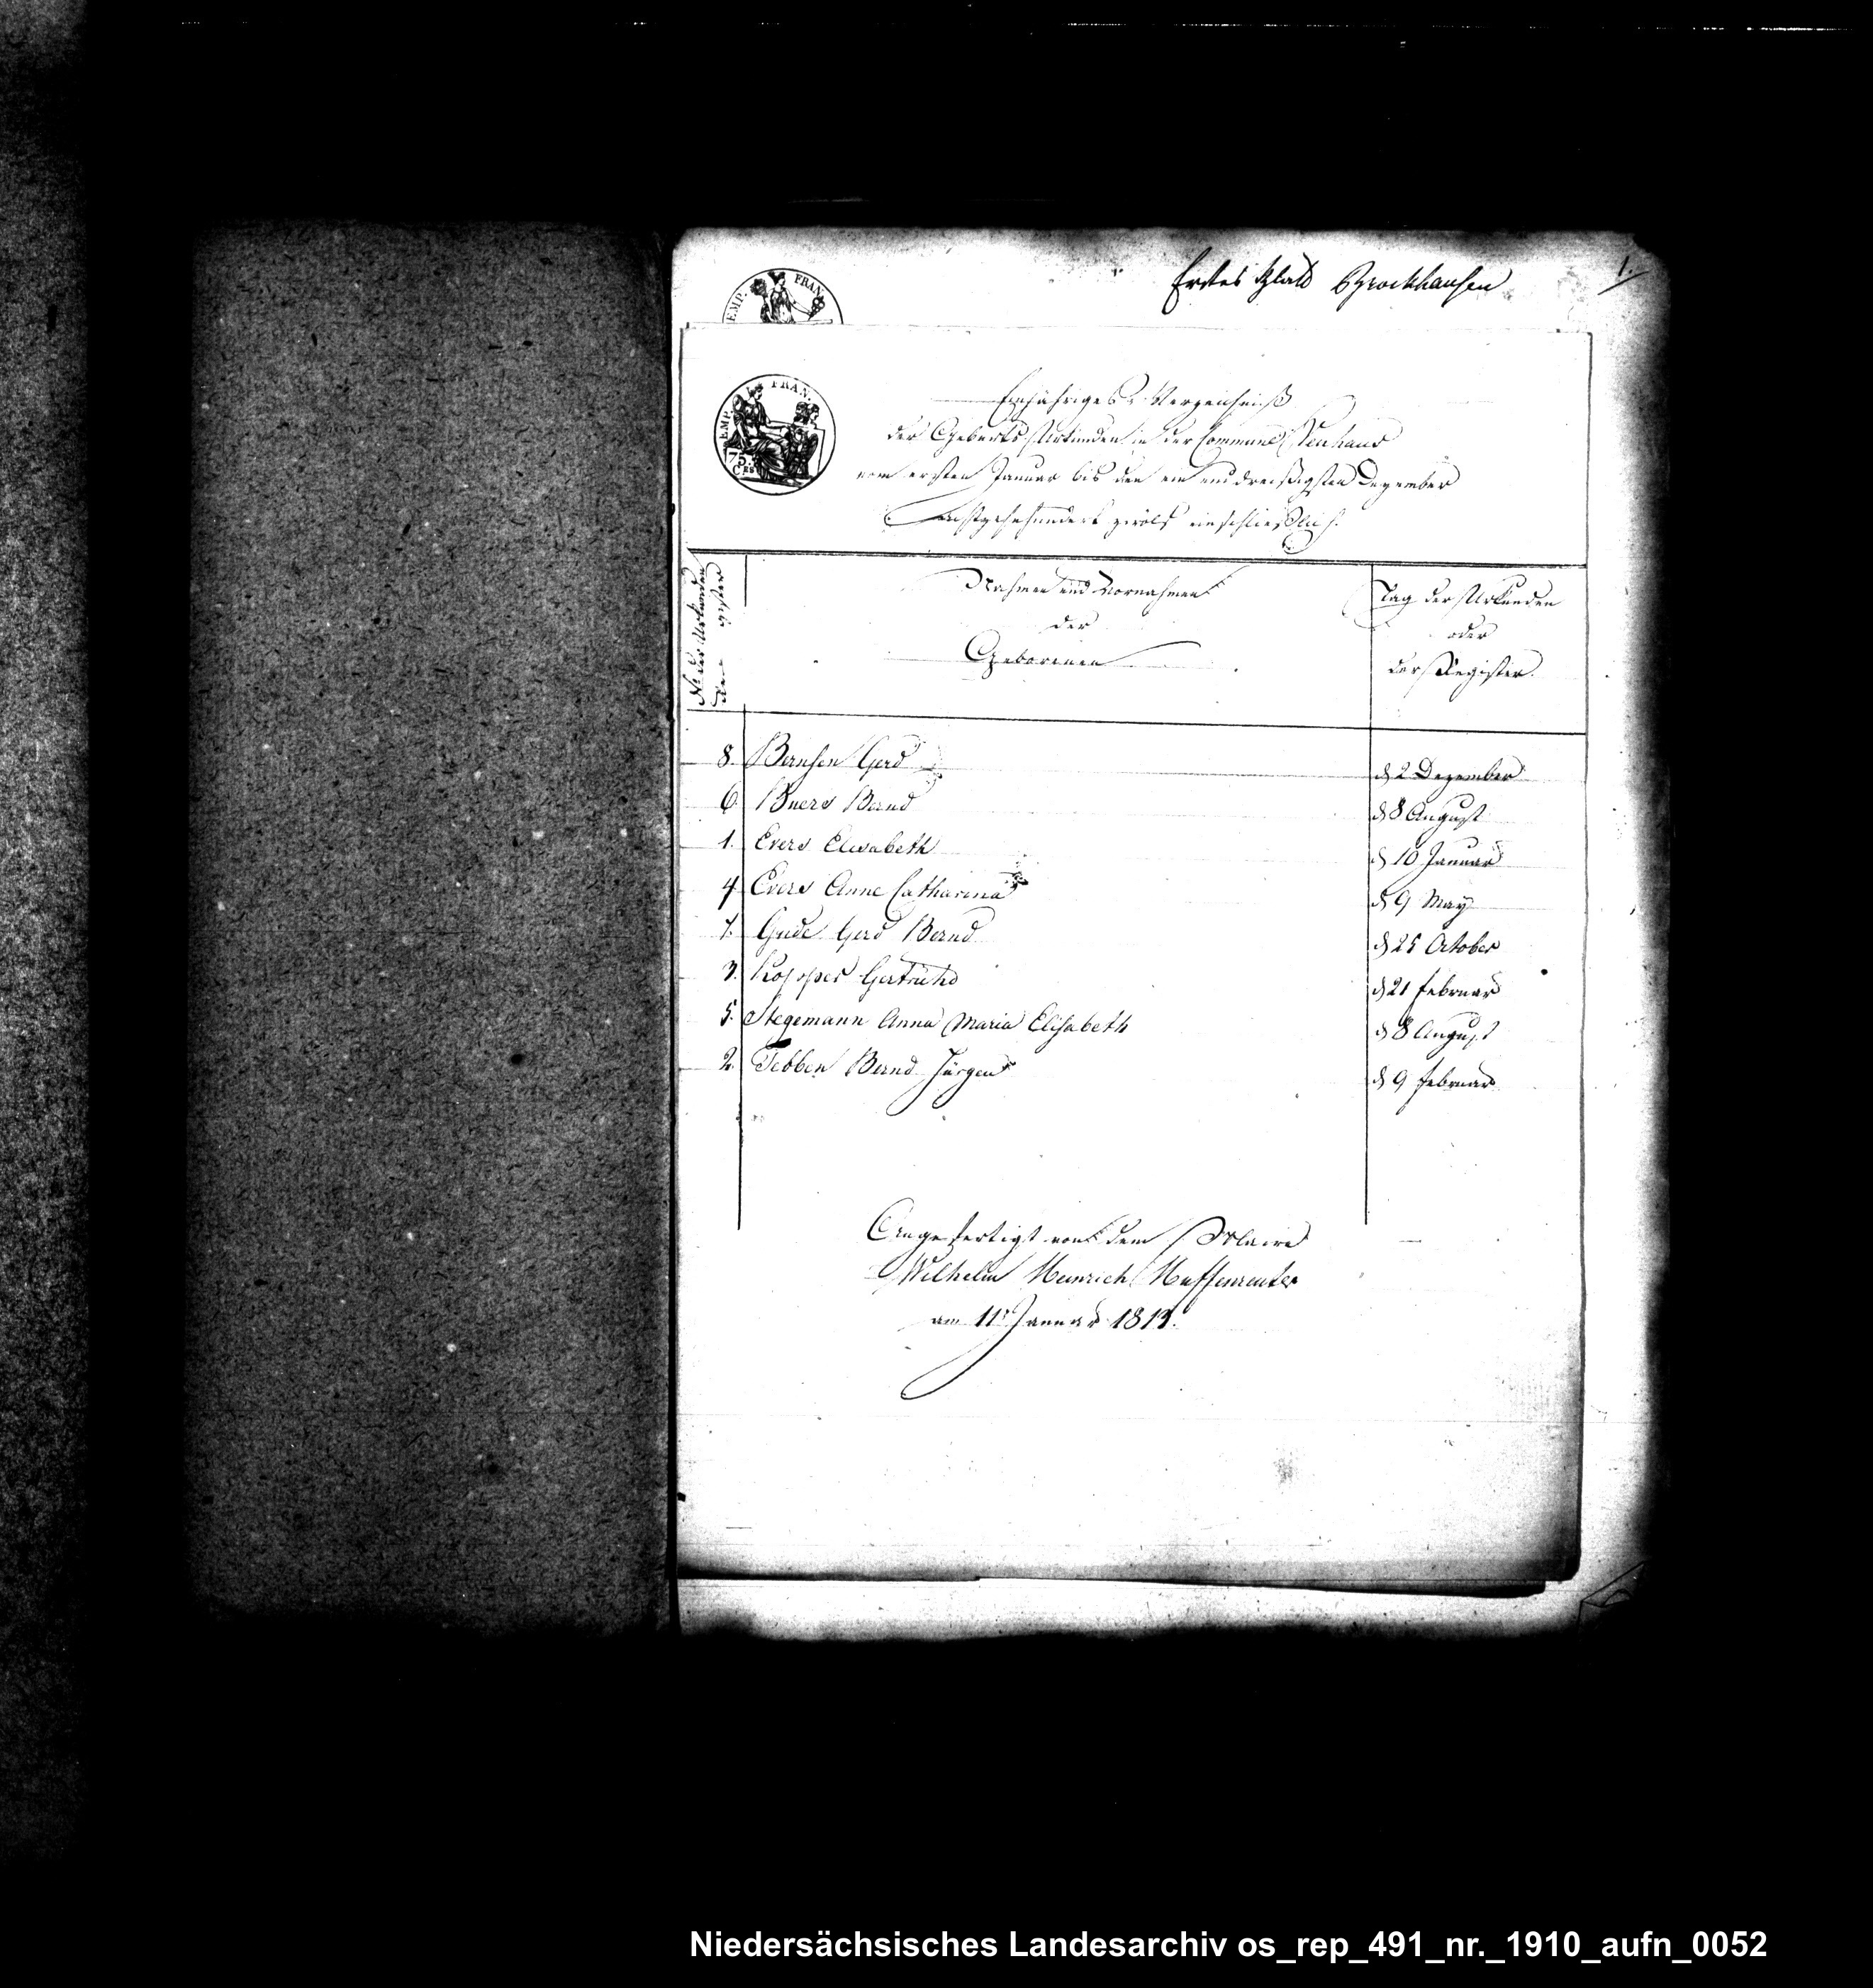 Erstes Blatt Brockhausen
1.
EMP. FRAN.
EMP. FRAN.
75.
Ces
Einjähriges Verzeichniß
der Geburts Urkunden in der Commune Neuhaus
vom ersten Januar bis den ein und dreißigsten Dezember
Achtzehnhundert zwölf einschließlich.
No der Urkunden
Register
Nahmen und Vornahmen
der
Geborenen
Tag der Urkunden
oder
der Register.
8. Bernsen Gerd d 2 Dezember
6. Buers Bernd d 8 August
1. Evers Elisabeth d 10 Januar
4. Evers Anne Catharina d 9 May
7. Gude Gerd Bernd d 25 October
3. Kopper Gertruhd d 21 Februar
5. Stegemann Anna Maria Elisabeth d 8 August
2. Tebben Bernd Jürgen d 9 Februar
Angefertigt von dem Maire
Wilhelm Heinrich
am 11t Januar 1813.
Niedersächsisches Landesarchiv os_rep_491_nr._1910_aufn_0052